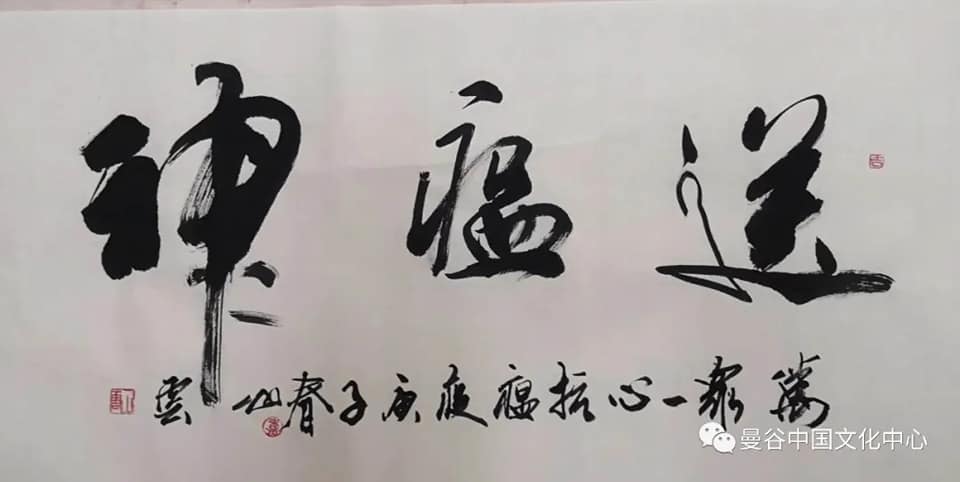 送瘟神
萬眾一心抗瘟疫庚子春仙雲
曼谷中国文化中心